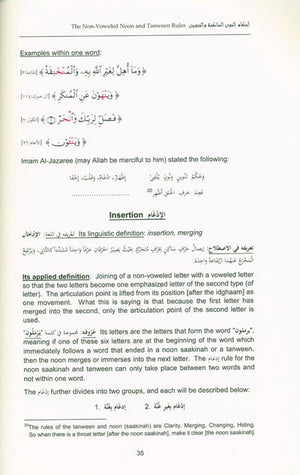 The Non-Voweled Noon and Tanween Rules أحكام النون الساكنة والتنوين
Examples within one word:
﴿ وَمَا أُهِلَّ لِغَيْرِ اللَّهِ بِهِ، وَالْمُنْخَنِقَةُ ﴾ [المائدة:٣]
﴿ وَيَنْهَوْنَ عَنِ الْمُنكَرِ ﴾ [آل عمران:١٠٤]
﴿ فَصَلِّ لِرَبِّكَ وَانْحَرْ ﴾ [الكوثر:٢]
﴿ وَيَنْئَوْنَ ﴾
Imam Al-Jazaree (may Allah be merciful to him) stated the following:
إِظْهَارٌ، ادْغَامٌ، وَقَلْبٌ، اخْفَا
فَعِنْدَ حَرْفِ الْحَلْقِ أَظْهِرْ 20
Insertion الإدْغَام
Its linguistic definition: insertion, merging تعريفه في اللغة: الإدْخَال
تعريفه في الاصطلاح: إيصَالُ حَرْفٍ سَاكِنٍ بِحَرْفٍ مُتَحَرِّكٍ بِحَيْثُ يَصِيرُ الحَرْفَانِ حَرْفًا وَاحِدًا مُشَدَّدًا كَالثَّانِي، وَيَرْتَفِعُ
المَخْرَجُ عَنْهُمَا ارْتِفَاعَةً وَاحِدَة.
Its applied definition: Joining of a non-voweled letter with a voweled letter
so that the two letters become one emphasized letter of the second type (of
letter). The articulation point is lifted from its position [after the idghaam] as
one movement. What this is saying is that because the first letter has
merged into the second, only the articulation point of the second letter is
used.
حُرُوفه: مجموعة في كلمة "يَرْمَلُون" Its letters are the letters that form the word "يرملون",
meaning if one of these six letters are at the beginning of the word which
immediately follows a word that ended in a noon saakinah or a tanween,
then the noon merges or immerses into the next letter. The إدغام rule for the
noon saakinah and tanween can only take place between two words and
not within one word.
The إدغام further divides into two groups, and each will be described below:
1. إدغام بغنة 2. إدغام بغير غنة
20The rules of the tanween and noon (saakinah) are Clarity, Merging, Changing, Hiding.
So when there is a throat letter [after the noon saakinah], make it clear [the noon saakinah].
35